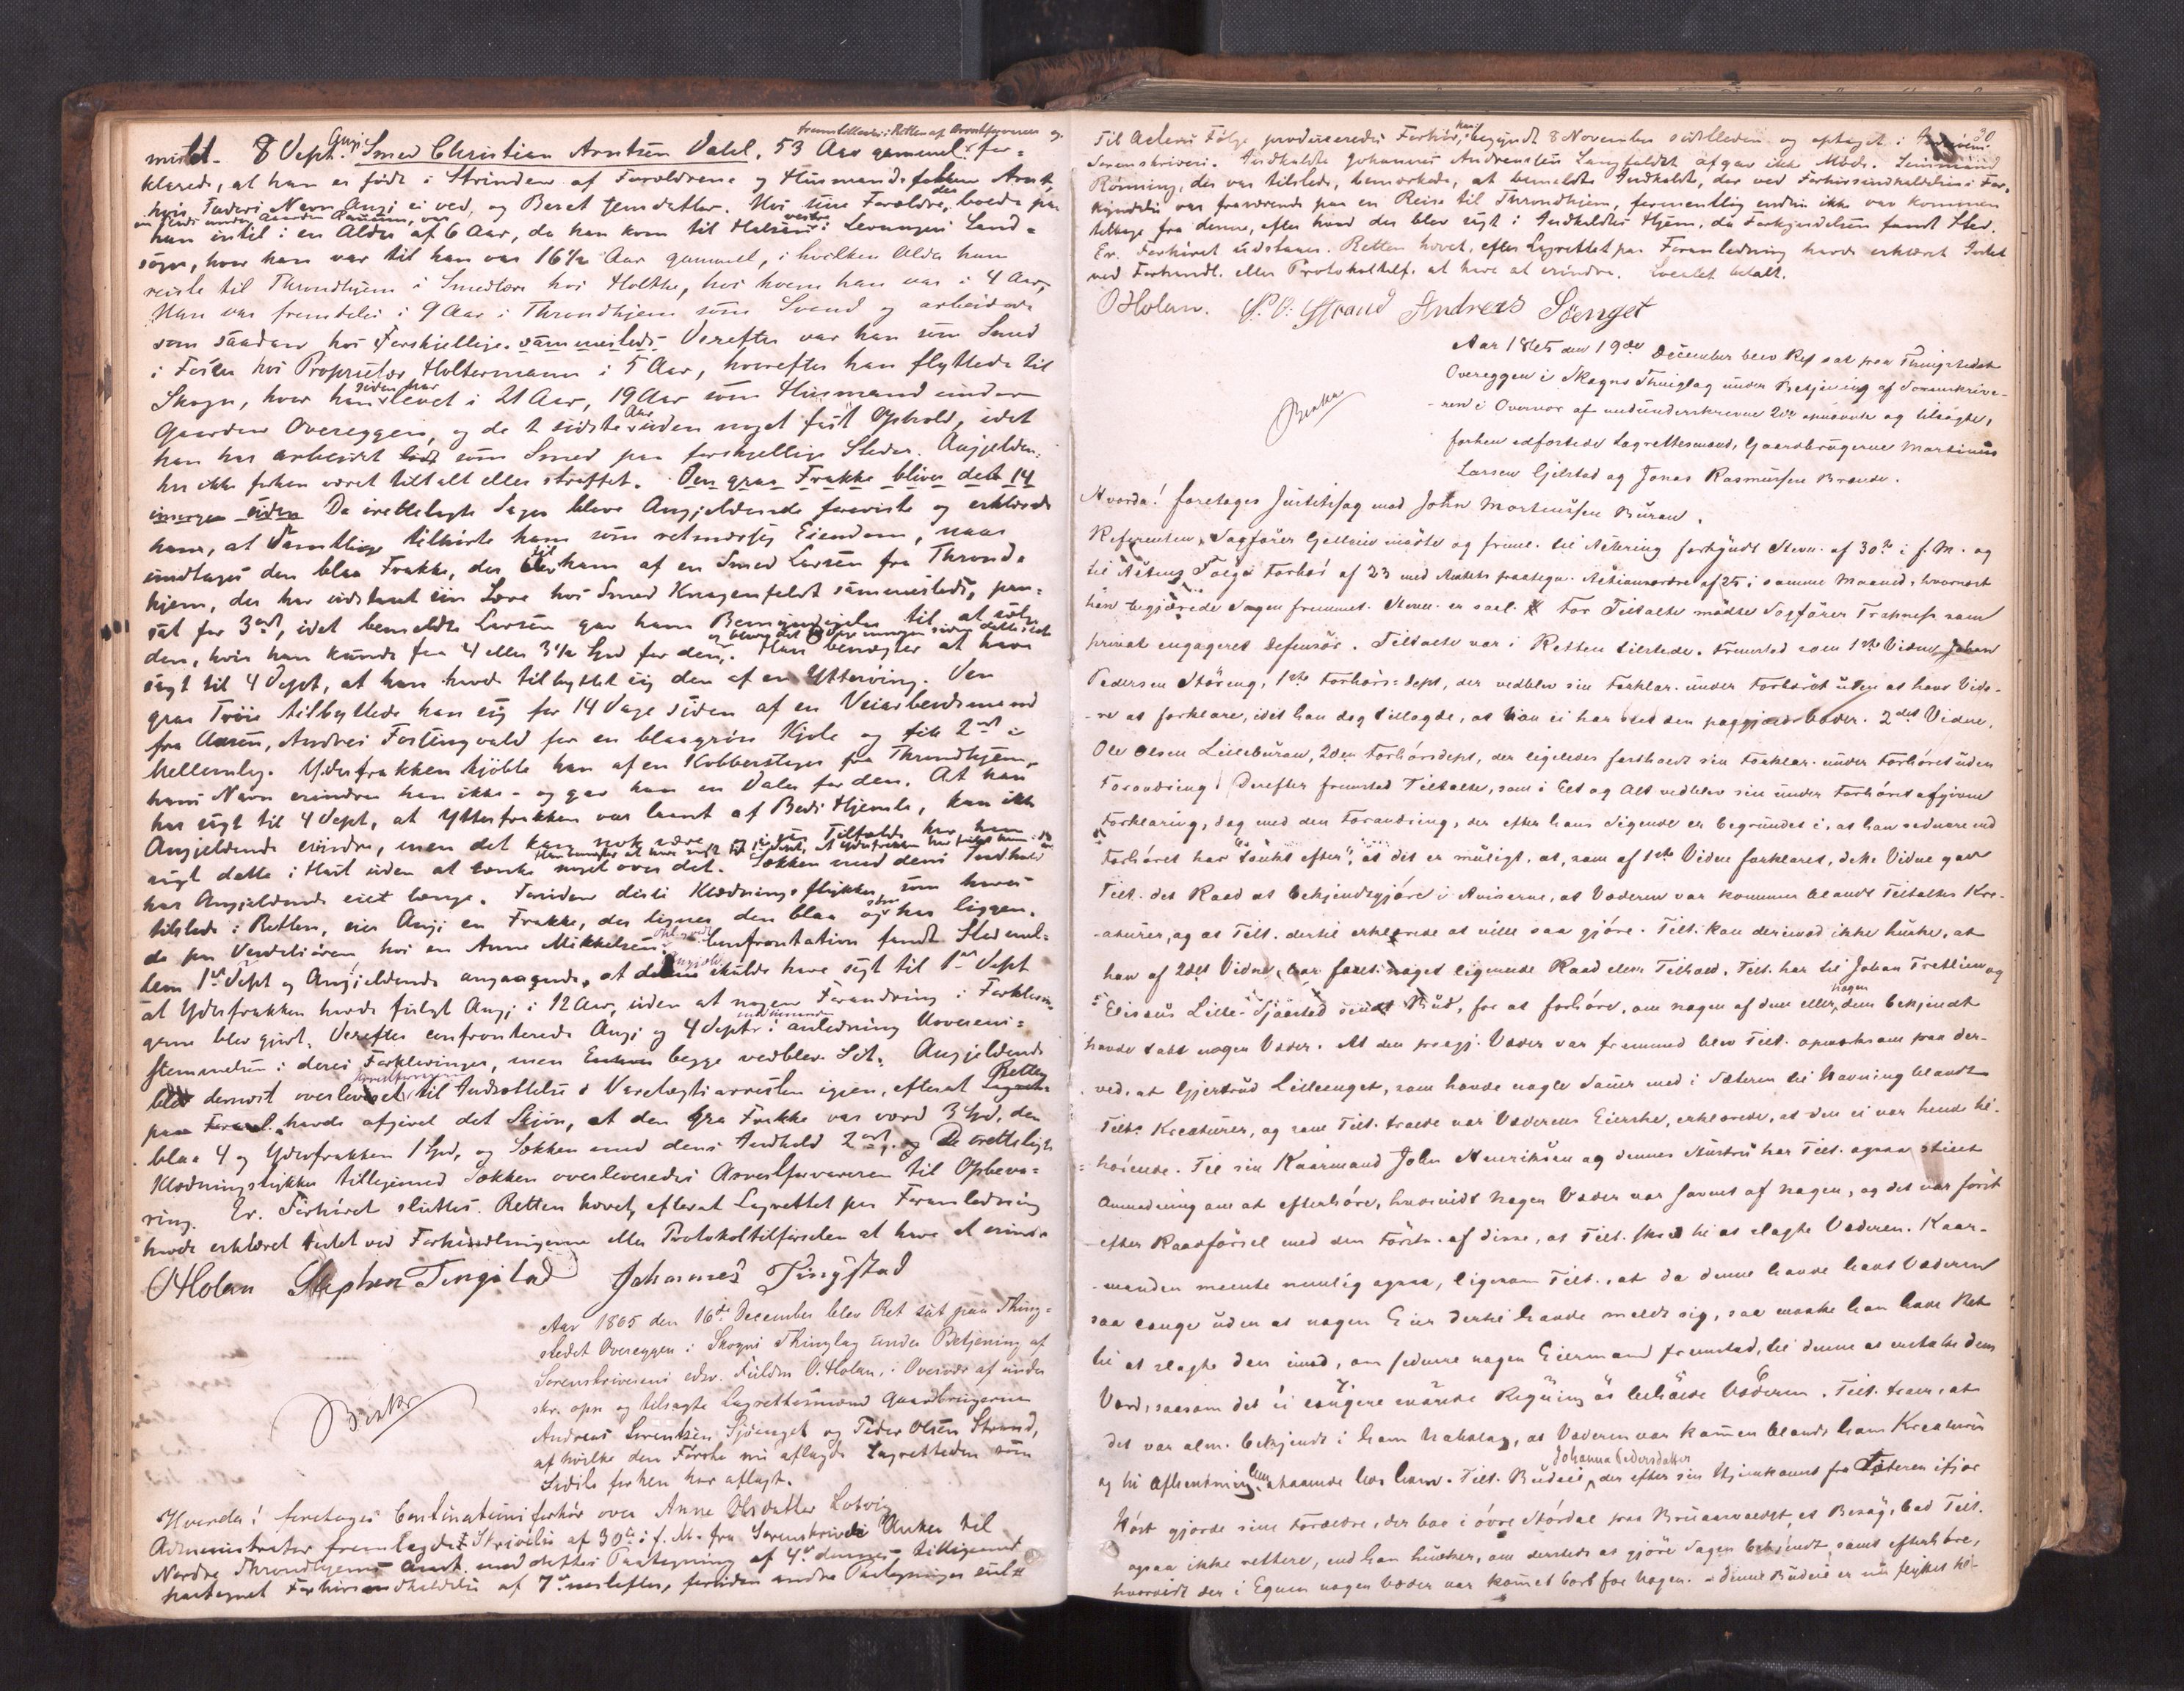 fremstilledes i Retten af Arrestforvareren og
mistet. 8 Dept. Angj. Smed Christian Arntsen Dahl, 53 Aar gammel, for-
klarede, at han er født i Strinden af Forældrene og Husmandsfolkene Arnt,
hvis Faders Navn Angj. ei ved, og Beret Jensdatter. Hos sine Forældre, der boede paa
en Plads under Gaarden Ranum, var
han intil i en Alder af 6 Aar, da han kom til Halsan i Levangers Land-
sogn, hvor han var til han var 16½ Aar gammel, i hvilken Alder han
reiste til Throndhjem i Smedlære hos Holthe, hos hvem han var i 4 Aar,
Han var fremdeles i 9 Aar i Throndhjem som Svend og arbeidede
som saadan hos Forskjellige sammesteds. Derefter var han som Smed
i Fosen hos Proprietær Holtermann i 5 Aar, hvorefter han flyttede til
Skogn, hvor han siden har levet i 21 Aar, 19 Aar som Husmand under
Gaarden Overeggen, og de 2 sidste Aar uden noget fast Ophold, idet
han har arbeidet som Smed paa forskjellige Steder. Angjelden-
har ikke forhen været tiltalt eller straffet. Den graa Frakke blives det 14
Da irettelagte Sager bleve Angjeldende foreviste og erklærede
hans, at samtlige tilhørte ham som retmæssig Eiendom, naar
undtages den blaa Frakke, der blev ham af en Smed Larsen fra Thrond-
hjem, der har udstaaet sin Lære hos Smed Kragenfeldt sammesteds, pan-
sat for 3 ort, idet bemeldte Larsen gav ham Bemyndigelse til at sælge
den, hvis han kunde faa 4 eller 3½ Spd for den. Han benægter at have
sagt til 4 Dept, at han havde tilbyttet sig den af en Ytterøing. Den
graa Trøie tilbyttede han sig for 14 Dage siden af en Veiarbeidsmand
fra Aasen, Andreas Fostingvald for en blaagrøn Kjole og fik 2 ort i
Mellemlag. Yderfrakken kjøbte han af en Kobberslager fra Throndhjem,
hans Navn erindrer han ikke - og gav han en Daler for den. At han
har sagt til 4 Dept, at Ytterfrakken var laant af Beds Hjemste, kan ikke
Angjeldende erindre, men det kan nok være, i saa Tilfælde har han
sagt dette i Hast uden at tænke noget over det. Sækken med dens Indhold
har Angjeldende eiet længe. Foruden disse Klædningsstykker, som haves
tilstede i Retten, eier Angj. en Frakke, der ligner den blaa og som han har liggen-
de paa Verdalsøren hos en Anne Mikkelsen. Confrontation fandt Sted mel-
lem 1ste Dept og Angjeldende angaaende, at denne skulde have sagt til 1ste Dept
at Yderfrakken havde fulgt Angj. i 12 Aar, uden at nogen Forandring i Forklarin-
gerne blev gjort. Derefter confronteredes Angj. og 4 Dept i Anledning Uoverens-
stemmelsen i deres Forklaringer, men begge vedblev Sit. Angjeldende
blev dernæst overleveret Arrestforvareren til Indsættelse i Varetægtsarresten igjen, efterat Retten
paa Foranl. havde afgivet det Skjøn, at den graa Frakke var værd 3 Spd, den
blaa 4 og Yderfrakken 1 Spd, og Sækken med dens Indhold 2 ort. De irettelagte
Klædningsstykker tilligemed Sækken overleveredes Arrestforvareren til Opbeva-
ring. Er. Forhøret sluttes. Retten hævet, efterat Lagrettet paa Foranledning
havde erklæret Intet ved Forhandlingerne eller Protokoltilførselen at have at erindre
OHolan Stephen Tingstad Johannes Tingstad
Aar 1865 den 16de December blev Ret sat paa Thing-
stedet Overeggen i Skogns Thinglag under Betjening af
Sorenskriverens edsv. Fuldm O. Holan, i Overvær af under
skr. opn og tilsagte Lagrettesmænd Gaardbrugerne
Andreas Lorentsen Sjøenget og Peder Olsen Strand,
af hvilke den Første nu aflagde Lagretteden som
Sidste forhen har aflagt.
Benkes
Hvorda! foretages Continuationsforhør over Anne Olsdatter Lotvig
Administrator fremlagde Skrivelse af 30te i f. M. fra Sorenskriver Anker til
Nordre Throndhjems Amt med dettes Paategning af 4de dennes tilligemed
paategnet Forhørsindkaldelse af 7de næstefter, foruden andre Paategninger
30
Til Actens Følge produceredes Forhør, begyndt 8 November sidstleden og optaget i
Sorenskriveri. Indkaldte Johannes Andreassen Langfaldet afgav ikke Møde. Lensmand
Rønning, der var tilstede, bemærkede, at bemeldte Indkaldte, der ved Forhørsindkaldelsens For-
kyndelse var fraværende paa en Reise til Throndhjem, formentlig endnu ikke var kommen
tilbage fra denne, efter hvad der blev sagt i Indkaldtes Hjem, da Forkyndelsen fandt Sted.
Er. Forhøret udstaaer. Retten hævet, efter Lagrettet paa Foranledning havde erklæret Intet
ved Forhandl. eller Protokoltilf. at have at erindre. Localet betalt.
OHolan. P. O. Strand Andreas Søenget
Aar 1865 den 19de December blev Ret sat paa Thingstedet
Overeggen i Skogns Thinglag under Betjening af Sorenskrive-
ren i Overvær af nedunderskrevne 2de opnævnte og tilsagte,
forhen edfæstede Lagrettesmænd, Gaardbrugerne Martinus
Larsen Gjelstad og Jonas Rasmussen Brænde.
Benkes
Hvorda! foretages Justitssag mod John Mortensen Buran.
Referenten, Sagfører Gjellein mødte og freml. til Aktering forkyndt Stevn. af 30te i f. M. og
til Aktens Følge Forhør af 23 med Amtets paategn. Aktionsordre af 25 i samme Maaned, hvornæst
han begjærede Sagen fremmet. Stevn. er saal. For Tiltalte mødte Sagfører Traneß som
privat engageret Defensor. Tiltalte var i Retten tilstede. Fremstod som 1ste Vidne Johan
Pedersen Støreng, 1ste Forhørs-dept, der vedblev sin Forklar. under Forhøret uden at have Vide-
re at forklare, idet han dog tillagde, at han ei har seet den paagjældende Væder. 2det Vidne,
Ole Olsen Lilleburan, 2den Forhørsdept, der ligeledes fastholdt sin Forklar. under Forhøret uden
Forandring. Derefter fremstod Tiltalte, som i Eet og Alt vedblev sin under Forhøret afgivne
Forklaring, dog med den Forandring, der efter hans Sigende er begrundet i, at han senere end
Forhøret har "tænkt efter", at det er muligt, at, som af 1ste Vidne forklaret, dette Vidne gav
Tilt. det Raad at bekjendtgjøre i Aviserne, at Væderen var kommen blandt Tiltaltes Kre-
aturer, og at Tilt. dertil erklærede at ville saa gjøre. Tilt. kan derimod ikke huske, at
han af 2det Vidne har faaet noget lignende Raad eller Tilhold. Tilt. har til Johan Tretlien og
Elisæus Lille-Sjaastad sendt Bud, for at forhøre, om nogen af dem eller nogen dem bekjendt
havde tabt nogen Væder. At den paagj. Væder var fremmed blev Tilt. opmærksom paa der-
ved, at Gjertrud Lilleenget, som havde nogle Sauer med i Sæteren til Havning blandt
Tilts. Kreaturer, og som Tilt. troede var Væderens Eierske, erklærede, at den ei var hende til-
hørende. Til sin Kaarmand John Henriksen og dennes Hustru har Tilt. ogsaa stillet
Anmodning om at efterhøre, hvorvidt nogen Væder var savnet af nogen, og det var først
efter Raadførsel med den Første af disse, at Tilt. skred til at slagte Væderen. Kaar-
manden mente nemlig ogsaa, ligesom Tilt., at da denne havde havt Væderen
saa længe uden at nogen Eier dertil havde meldt sig, saa maatte han have Ret
til at slagte den imod, om senere nogen Eiermand fremstod, til denne at erstatte dens
Værd, saasom det ei længere Regning at beholde Væderen. Tilt. troer, at
det var alm. bekjendt i hans Nabolag, at Væderen var kommen blandt hans Kreaturer
og til Afhentning henstaaende hos ham. Tilt. Budeie, Johanna Pedersdatter der efter sin Hjemkomst fra Sæteren ifjor
Høst gjorde sine Forældre, der boe i øvre Stjørdal paa Bruaasvaldet, et Besøg, bad Tilt.
ogsaa ikke rettere, end han husker, om dersteds at gjøre Sagen bekjendt, samt efterhøre,
hvorvidt der i Egnen nogen Væder var kommet bort for Nogen. - denne Budeie er nu flyttet til-